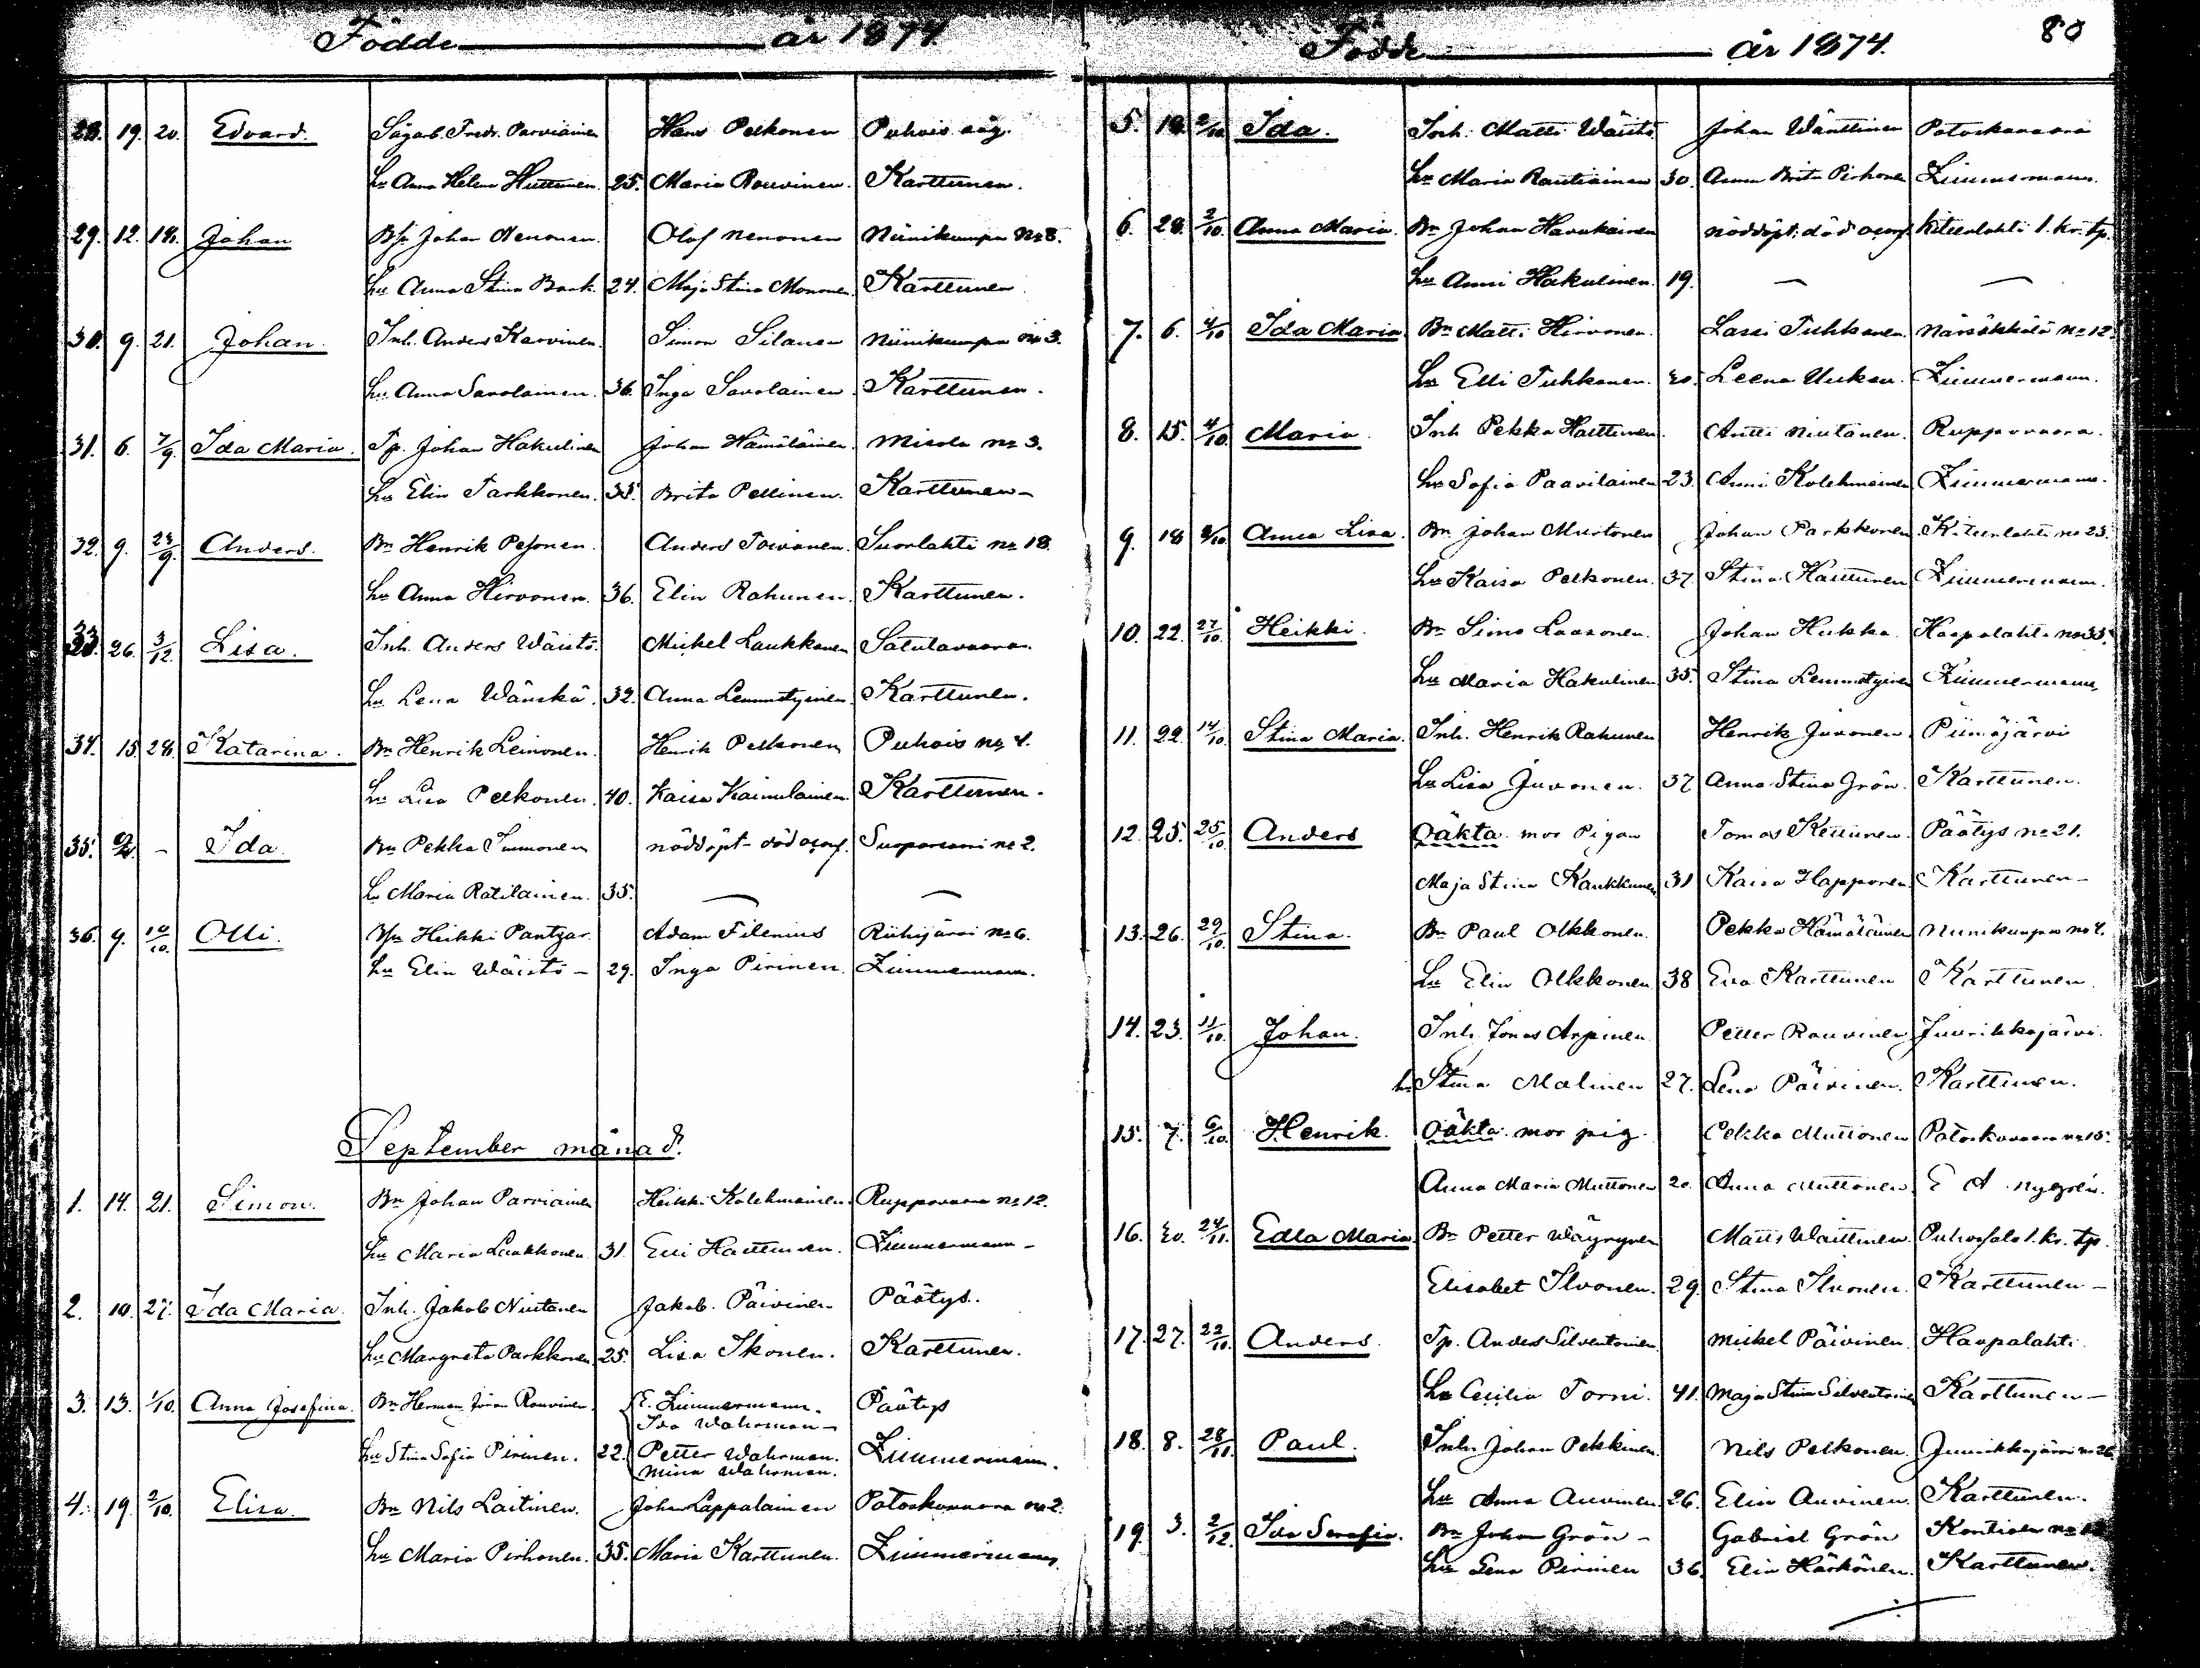 Födde år 1874.
28. 19. 20. Edvard. Sågarb. Fredr. Parviainen Hans Pelkonen Puhois såg.
Hu Anna Helena Huttunen. 25. Maria Rouvinen. Karttunen.
29. 12. 18. Johan Johan Nenonen. Olof Nenonen Niinikumpu No 8.
Hu Anna Stina Bank. 24. Maja Stina Mononen Karttunen
30. 9. 21. Johan. Inh. Anders Karvinen. Simon Silanen Niinikumpu No 3.
Hu Anna Savolainen. 36. Inga Savolainen. Karttunen.
31. 6. 7/9. Ida Maria. Tp. Johan Hakulinen Johan Hämäläinen. Misola No 3.
Hu Elin Tarkkonen. 33. Brita Pellinen. Karttunen
32. 9. 24/9. Anders. Bn Henrik Pesonen. Anders Toivanen. Suorlahti No 18.
Hu Anna Hirvonen. 36. Elin Rahunen. Karttunen.
33. 26. 3/12. Lisa. Inh. Anders Wäistö. Mickel Laukkanen Satulavaara.
Hu Lena Wänskä. 32. Anna Lemmetyinen. Karttunen.
34. 15. 28. Katarina. Bn Henrik Leinonen. Henrik Pelkonen Puhois No 4.
Hu Lisa Pelkonen. 40. Kaisa Kainulainen. Karttunen.
35. - Ida. Bn Pekka Immonen nöddöpt - död Suoparsaari No 2.
Hu Maria Ratilainen. 35. — —
36. 9. 10/10. Olli. Heikki Pantzar. Adam Filenius Riihijärvi No 6.
Hu Elin Wäistö - 29. Inga Pirinen. Zimmermann.
September månad.
1. 14. 21. Simon. Bn Johan Parviainen Heikki Kolehmainen. Ruppovaara No 12.
Hu Maria Laukkanen 31. Elli Hartunen. Zimmermann
2. 10. 27. Ida Maria. Inh. Jakob Niutanen Jakob Päivinen Päätys.
Hu Margreta Parkkonen 25. Lisa Ikonen. Karttunen.
3. 13. 1/10. Anna Josefina. Bn Herman Johan Rouvinen. E. Zimmermann. Päätys
Ida Wahrman
Hu Stina Sofia Pirinen. 22. Petter Wahrman. Zimmermann.
Mina Wahrman.
4. 19. 2/10. Elisa. Bn Nils Laitinen. Johan Lappalainen Potoskavaara No 2.
Hu Maria Pirhonen. 35. Maria Karttunen. Zimmermann.
Födde år 1874. 80
5. 18. 2/10. Ida. Inh. Matti Wäistö Johan Wänttinen Potoskavaara
Hu Maria Rautiainen 30. Anna Brita Pirhonen Zimmermann.
6. 28. 2/10. Anna Maria. Bn Johan Havukainen nöddöpt. död Kiteenlahti 1. kr. tp.
Hu Anni Hakulinen. 19. — —
7. 6. 4/10 Ida Maria Bn Matti Hirvonen. Lassi Tuhkanen. Närsäkkälä No 12.
Hu Elli Tuhkanen. 20. Leena Zimmermann.
8. 15. 4/10. Maria. Inh. Pekka Harttunen. Antti Niutanen. Ruppovaara.
Hu Sofia Paavilainen 23. Anni Kolehmainen Zimmermann.
9. 18 8/10. Anna Lisa. Bn Johan Murtonen Johan Parkkonen Kiteenlahti No 23.
Hu Kaisa Pelkonen. 37. Stina Harttunen Zimmermann.
10. 22. 27/10. Heikki. Bn Simo Laasonen. Johan Hukka. Haapalahti No 33.
Hu Maria Hakulinen 35. Stina Lemmetyinen Zimmermann.
11. 22. 14/10. Stina Maria. Inh. Henrik Rahunen Henrik Juvonen. Piimäjärvi
Hu Lisa Juvonen. 37 Anna Stina Grön. Karttunen.
12. 25. 25/10. Anders Oäkta. mor Pigan Tomas Kettunen. Päätys No 21.
Maja Stina Kaukkunen 31 Kaisa Happonen Karttunen
13. 26. 29/10. Stina. Bn Paul Olkkonen. Pekka Hämäläinen Niinikumpu No 4.
Hu Elin Olkkonen 38 Eva Karttunen Karttunen.
14. 23. 11/10. Johan. Inh. Jonas Arpinen Petter Rouvinen Juurikkajärvi.
Hu Stina Malinen 27. Lena Päivinen. Karttunen.
15. 7. 6/10. Henrik. Oäkta. mor pig. Pekka Muttonen Potoskavaara No 15.
Anna Maria Muttonen 20. Anna Muttonen. E A Nygrén.
16. 20. 24/11. Edla Maria. Bn Petter Wäyrynen Matts Wänttinen. Puhossalo 1. kr. tp.
Elisabet Ilvonen. 29. Stina Ilvonen. Karttunen
17. 27. 22/10. Anders. Tp. Anders Silventoinen Mickel Päivinen. Haapalahti.
Hu Cecilia Torni. 41. Maja Stina Silventoinen Karttunen
18. 8. 28/11. Paul. Inh. Johan Pekkinen. Nils Pelkonen. Juurikkajärvi No 26.
Hu Anna Auvinen. 26. Elin Auvinen. Karttunen.
19. 3. 2/12. Ida Serafia. Bn Johan Grön - Gabriel Grön Kontiola
Hu Lena Pirinen 36. Elin Härkönen. Karttunen.